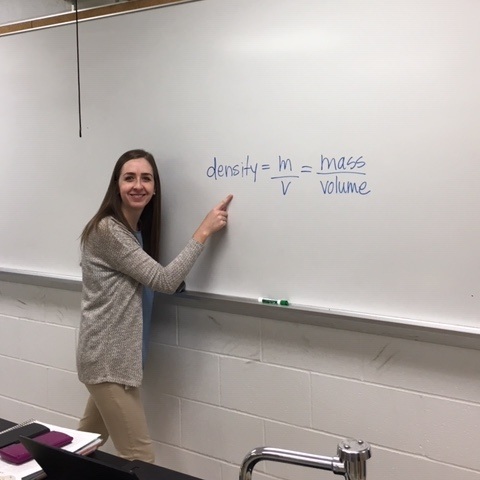 density = m/v = mass/volume